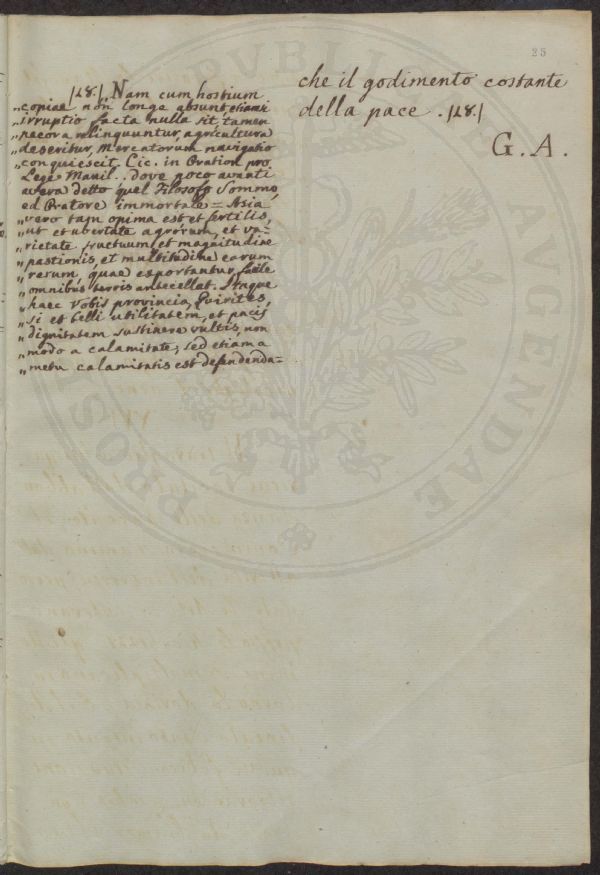 25
/48./ „Nam cum hostium
„copiae non longe absunt etiamsi
„irruptio facta nulla sit tamen
„pecora relinquuntur, agricultura
„deseritur, mercatorum navigatio
„conquiescit. Cic. in Oration. pro
Lege Manil.. dove poco avanti
aveva detto quel Filosofo sommo,
ed Oratore immortale = Asia
„vero tam opima est et fertilis,
„ut et ubertate agrorum, et va-
„rietate fructuum et magnitudine
„pastionis, et multitudine earum
„rerum quae exportantur, facile
„omnibus terris antecellat. Itaque
„haec vobis provincia, Quirites,
„si et belli utilitatem, et pacis
„dignitatem sustinere vultis, non
„modo a calamitate, sed etiam a
„metu calamitatis est defendenda=
che il godimento costante
della pace . /48./
G. A.
PUBLI
AUGENDAE
PROS